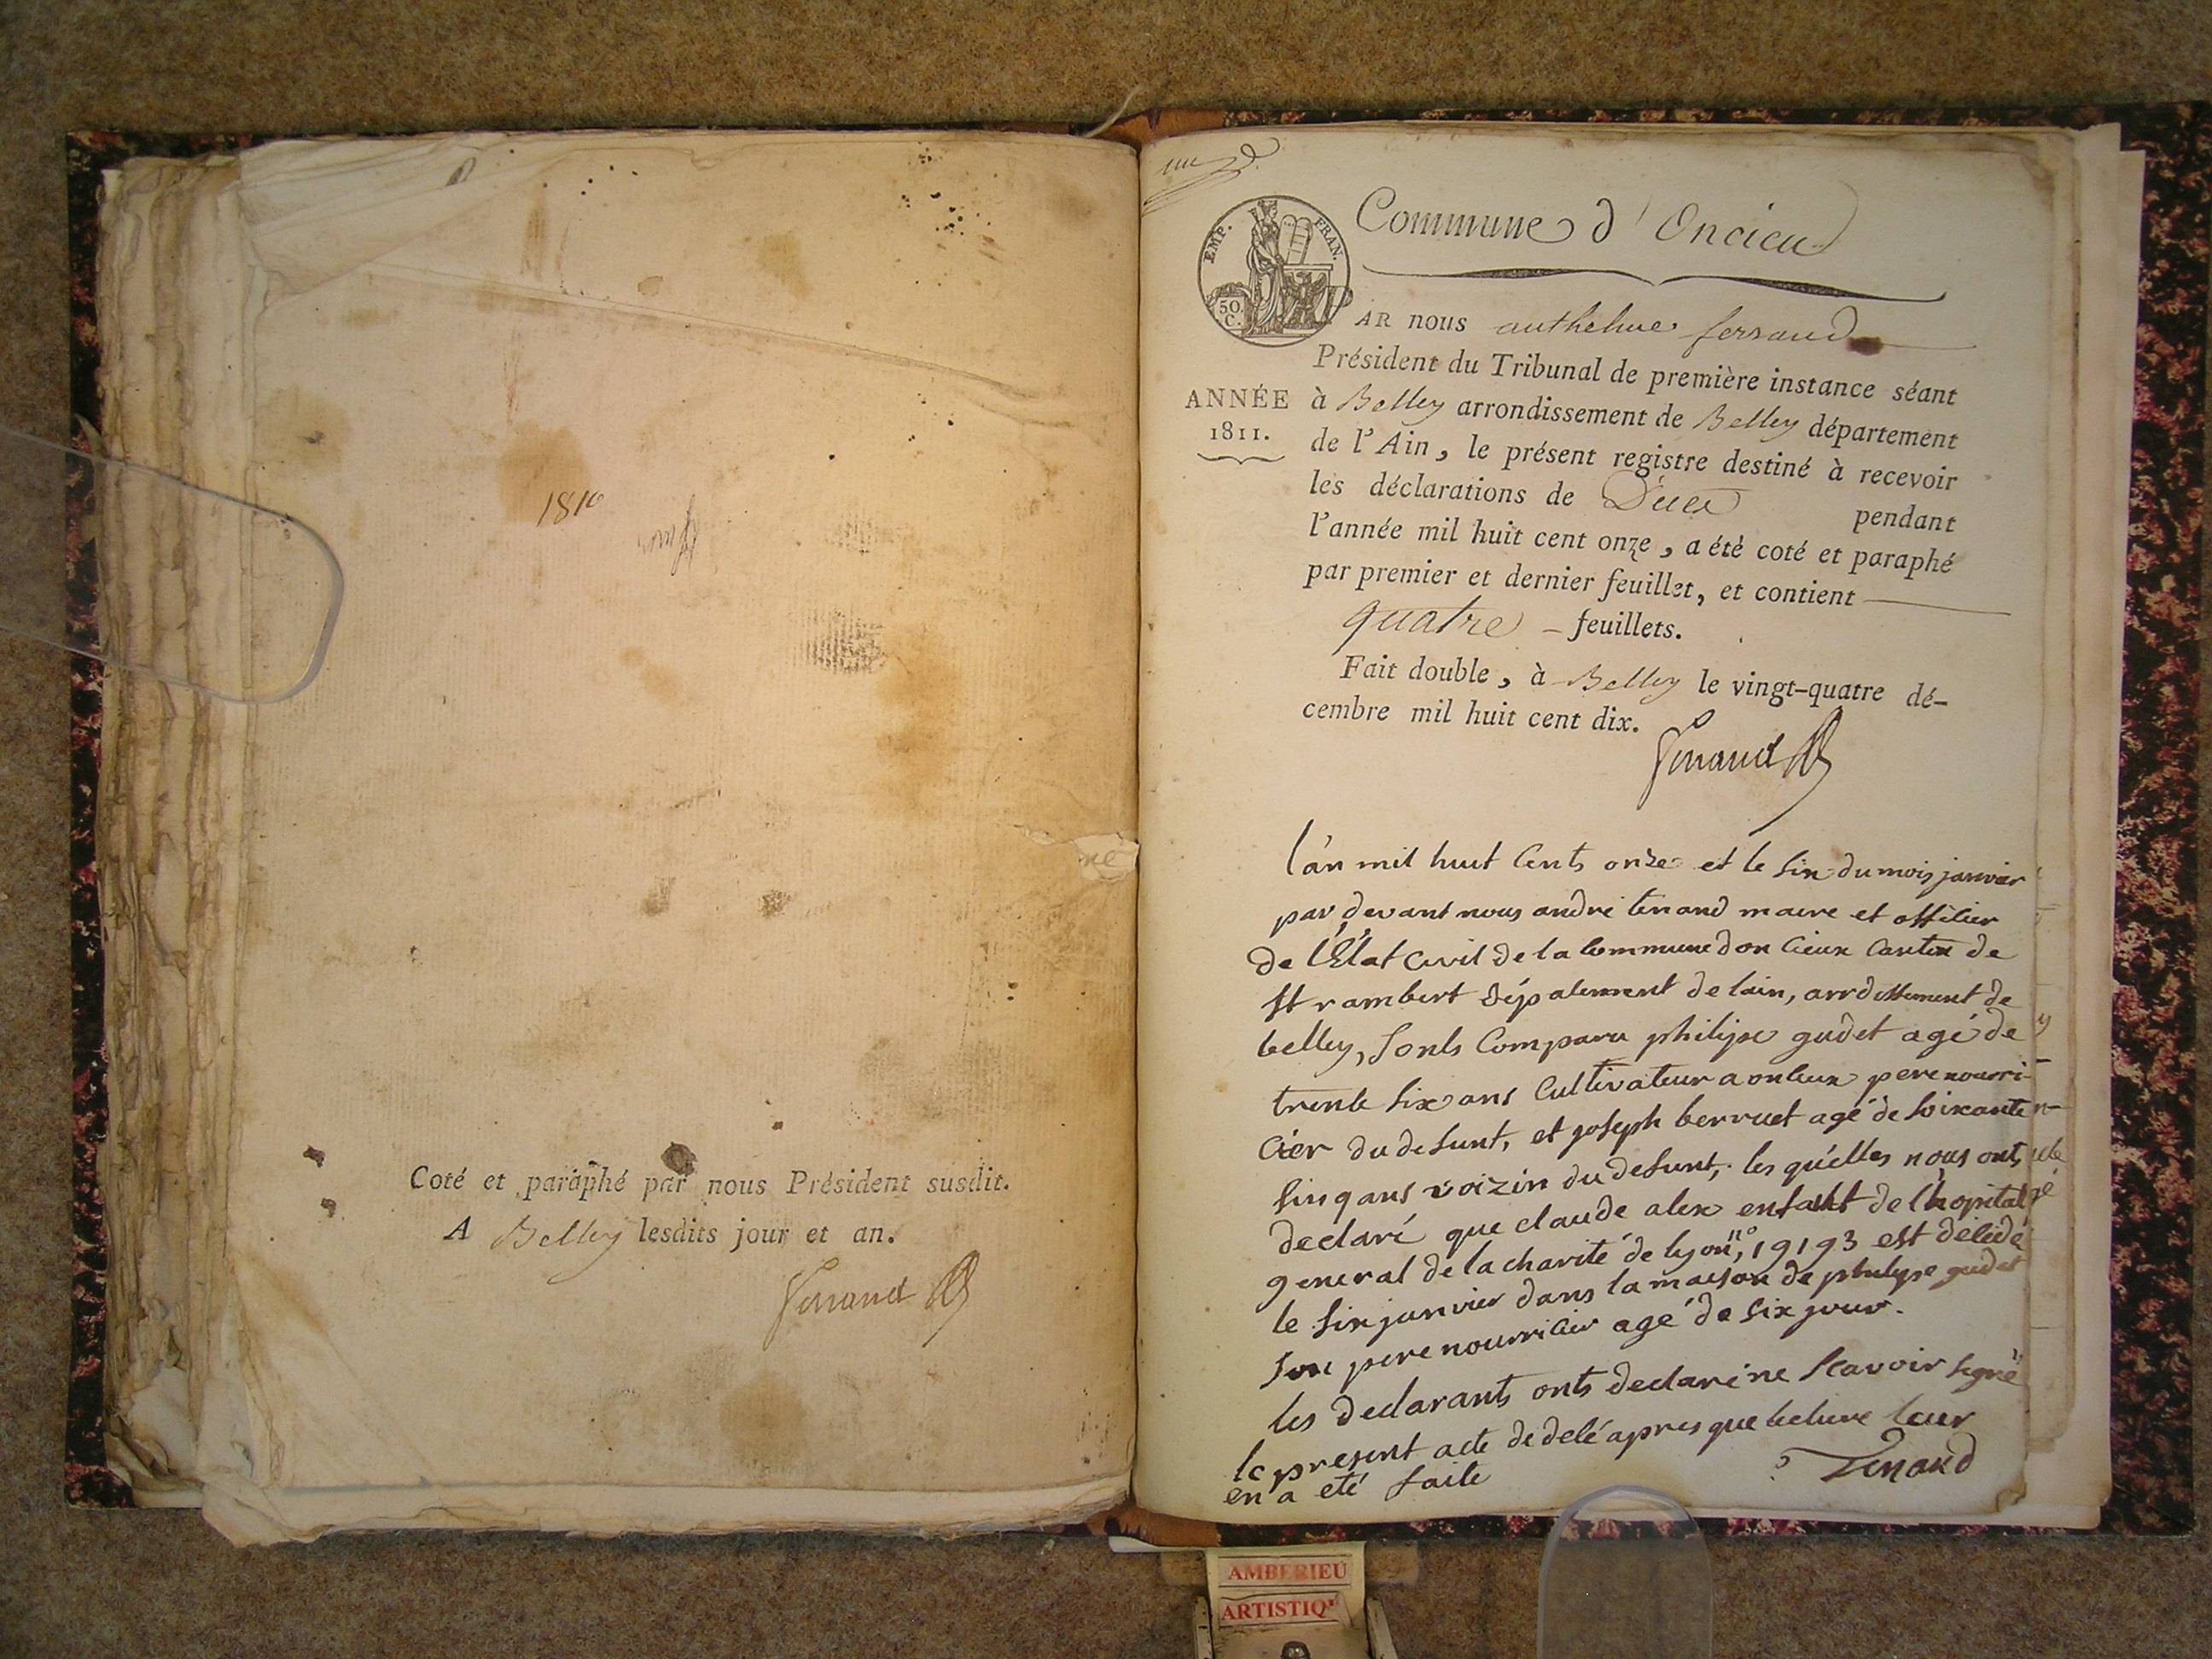 1810
Coté et paraphé par nous Président susdit.
A Belley lesdits jour et an.
Ferrand
Commune d'Oncieu
EMP. FRAN.
50.
C.
AR nous anthelme ferrand
Président du Tribunal de première instance séant
ANNÉE
1811.
à Belley arrondissement de Belley département
de l'Ain, le présent registre destiné à recevoir
les déclarations de Décès pendant
l'année mil huit cent onze, a été coté et paraphé
par premier et dernier feuillet, et contient
quatre - feuillets.
Fait double, à Belley le vingt-quatre dé-
cembre mil huit cent dix.
Ferrand
l'an mil huit Cents onze et le six du mois janvier
par devant nous andré tenand maire et officier
de l'Etat Civil de la Commune doncieux Canton de
st rambert département de lain, arrdissement de
belley, sonts Comparu philipe gudet agé de
trente six ans Cultivateur a oncieux pere nourri-
cier du defunt, et joseph berruet agé de soixante
sinq ans voizin du defunt, les quélles nous onts
declaré que claude alex enfant de lhopital
general de la charité de lyon, n° 19193 est décédé
le six janvier dans la maison de philipe gudet
son pere nourricier agé de six jour.
les declarants onts declaré ne scavoir signé
le present acte de décé apres que lecture leur
en a eté faite
Tenand
AMBERIEU
ARTISTIQ